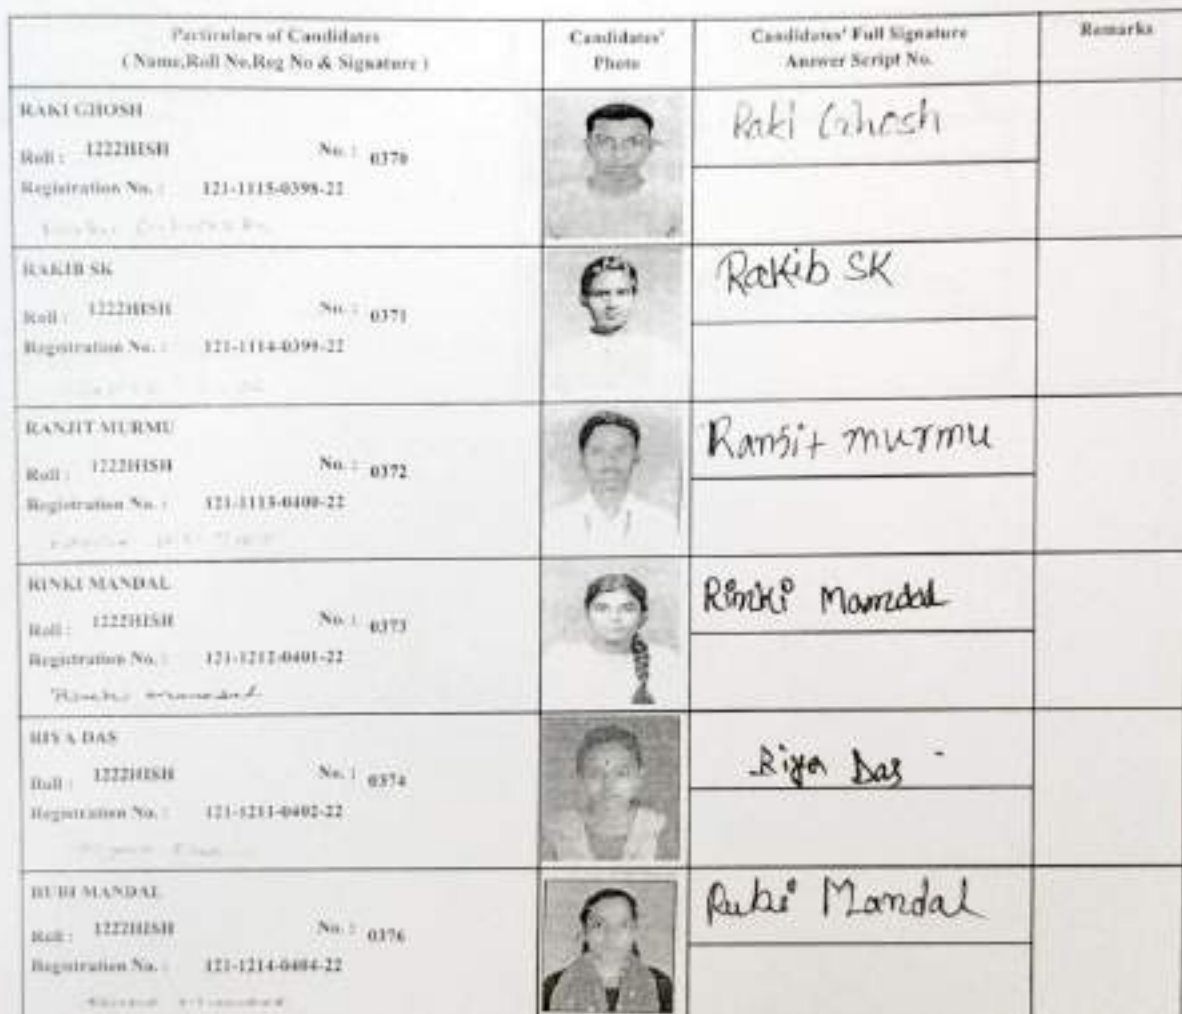 Particulars of Candidates
( Name,Roll No,Reg No & Signature )
Candidates'
Photo
Candidates' Full Signature
Answer Script No.
Remarks
RAKI GHOSH
Roll : 1222HISH No. : 0370
Registration No. : 121-1115-0398-22
Raki Ghosh
RAKIB SK
Roll : 1222HISH No. : 0371
Registration No. : 121-1114-0399-22
Rakib SK
RANJIT MURMU
Roll : 1222HISH No. : 0372
Registration No. : 121-1113-0400-22
Ranjit murmu
RINKI MANDAL
Roll : 1222HISH No. : 0373
Registration No. : 121-1212-0401-22
Rinki mandal
Rinki Mandal
RIYA DAS
Roll : 1222HISH No. : 0374
Registration No. : 121-1211-0402-22
Riya Das
RUBI MANDAL
Roll : 1222HISH No. : 0376
Registration No. : 121-1214-0404-22
Rubi Mandal